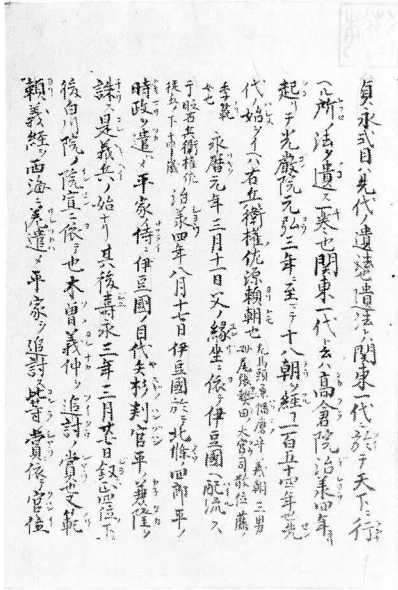 貞永式目ハ先代ノ遺法遺法ハ関東一代ニ於テ天下ニ行
ヘル所ノ法ヲ遺ス一巻也関東一代ト云ハ高倉院治承四年
起リテ光厳院元弘三年ニ至テ十八朝ヲ経一百五十四年也先
代ノ始ヲイハ右兵衛権佐源頼朝也
左馬頭兼播磨守義朝三男
母尾張熱田大宮司散位藤ノ
季範
女也
永暦元年三月十一日父ノ縁坐ニ依テ伊豆國ヘ配流ス
于時右兵衛権佐
従五ノ下十四歳
治承四年八月十七日伊豆國於テ北條四郎平ノ
時政ヲ遣メ平家ノ侍伊豆國ノ目代矢杉判官平ノ兼隆ヲ
誅ス是義兵ノ始ナリ其後壽永三年三月廿七日叙正四位下ニ
後白川院ノ院宣ニ依テ也木曽義仲ヲ追討ノ賞也又範
頼義経ヲ西海ニ差遣メ平家ヲ追討ス此等ノ賞依テ官位